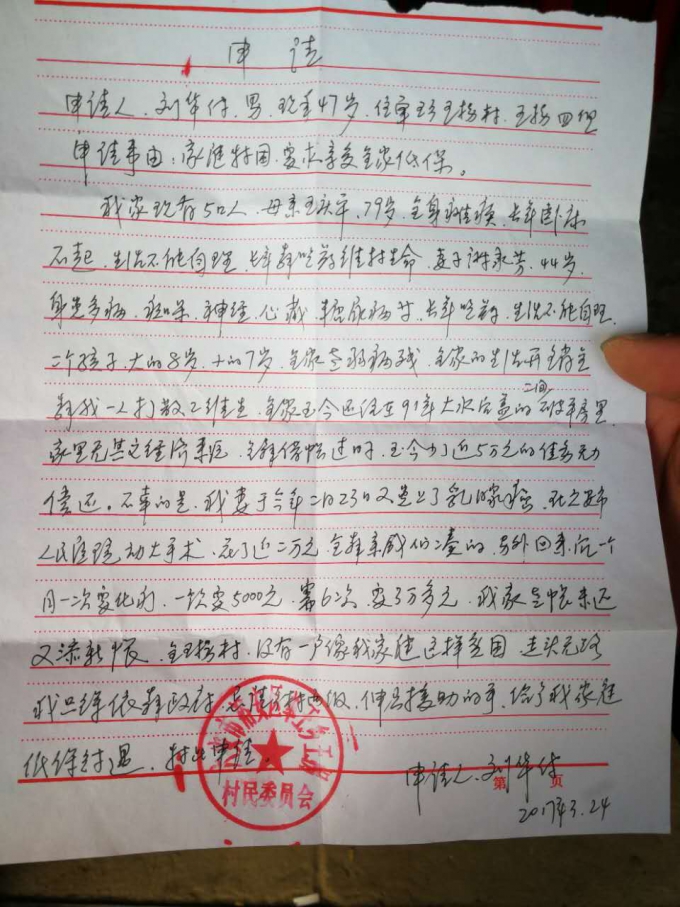 申请
申请人，刘华付，男，现年47岁，住 王杨村，王杨四组
申请事由：家庭特困，要求享受全家低保。
我家现有5口人，母亲王庆平，79岁，全身瘫痪，长年卧床
不起，生活不能自理，长年靠吃药维持生命，妻子谢永芳，44岁，
身患多病，神经，心藏，糖尿病等，长年吃药，生活不能自理，
二个孩子，大的8岁，小的7岁，全家老弱病残，全家的生活开销全
靠我一人打散工维生，全家至今还住在91年大水后盖的二间 平房里，
家里无其它经济来源，全靠借帐过日，至今少了近5万元的债务无力
偿还。不幸的是，我妻于今年二月23日又患上了乳腺癌，在 市
人民医院动大手术，花了近二万元，全靠亲戚们凑的，另外回来后一个
月一次要化疗，一次要5000元，需6次，要3万多元，我家是旧帐未还
又添新帐，全王杨村，没有一户像我家庭这样贫困，走头无路
我只得依靠政府，恳请 村两级，伸出援助的手，给予我家庭
低保待遇，特此申请。
村民委员会
申请人：刘华付
第 页
2017年3.24